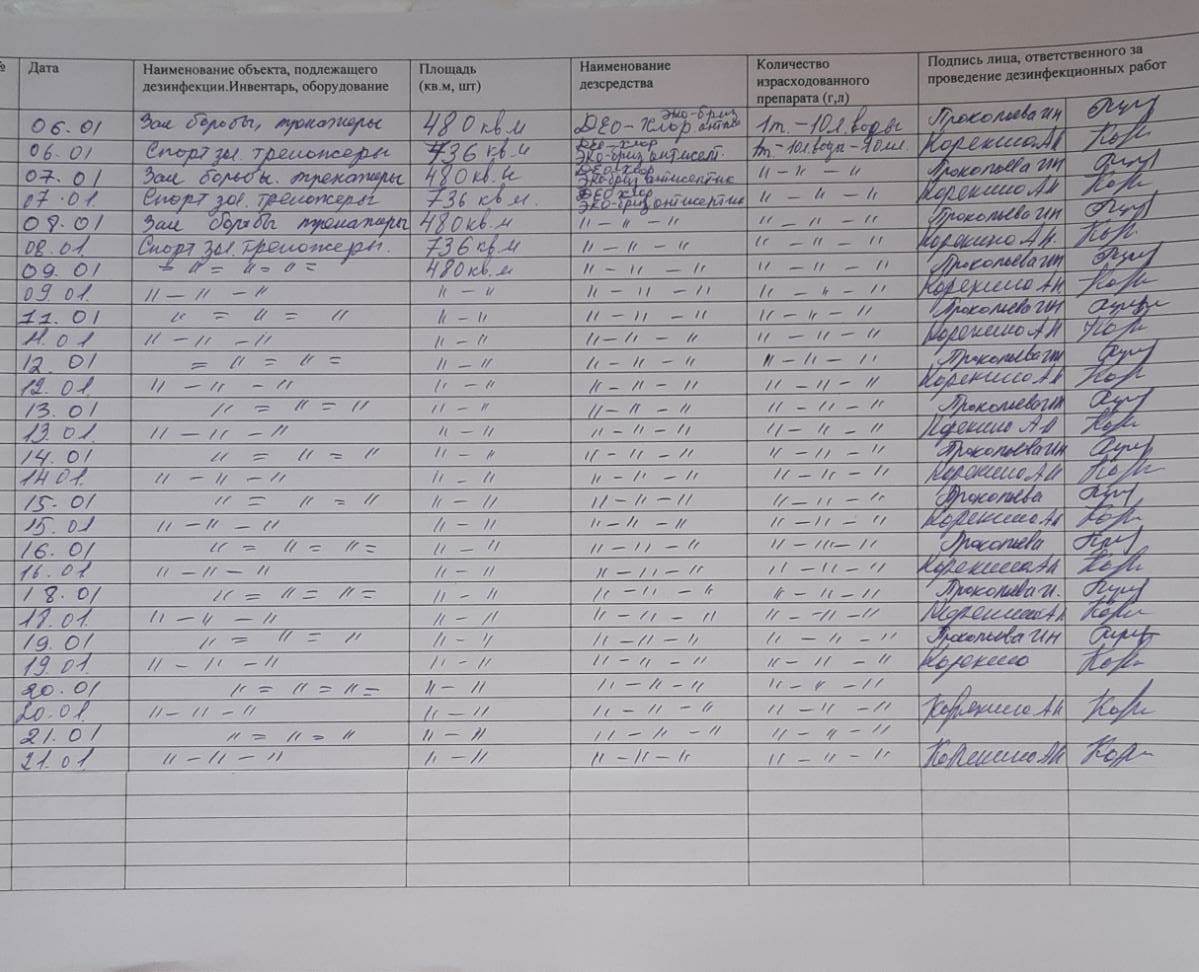 № Дата Наименование объекта, подлежащего дезинфекции.Инвентарь, оборудование Площадь (кв.м, шт) Наименование дезсредства Количество израсходованного препарата (г,л) Подпись лица, ответственного за проведение дезинфекционных работ
06.01 Зал борьбы, тренажеры 480 кв.м ДЕО-хлор Эко-бриз антис 1т.-10л.воды Прокопьева ИН
06.01 Спорт зал. тренажеры 736 кв м Део-хлор Эко-бриз антисет. 1т-10л воды Корекино АН
07.01 Зал борьбы. тренажеры 480 кв.м ДЕО-хлор Эко-бриз антисептик " - " - " Прокопьева ИН
07.01 Спорт зал. тренажеры 736 кв м. ДЕО хлор Эко-бриз антисептик " - " - " Корекино АН
08.01 Зал борьбы тренажеры 480 кв м " - " - " " - " - " Прокопьева ИН
08.01 Спорт зал. тренажеры. 736 кв м " - " - " " - " - " Корекино АН.
09.01 - " = " = " = 480 кв м " - " - " " - " - " Прокопьева ИН
09.01. " - " - " " - " " - " - " " - " - " Корекино АН
11.01 " = " = " " - " " - " - " " - " - " Прокопьева ИН
11.01 " - " - " " - " " - " - " " - " - " Корекино АН
12.01 = " = " = " - " " - " - " " - " - " Прокопьева ИН
12.01. " - " - " " - " " - " - " " - " - " Корекино АН
13.01 " = " = " " - " " - " - " " - " - " Прокопьева ИН
13.01. " - " - " " - " " - " - " " - " - " Корекино АН
14.01 " = " = " " - " " - " - " " - " - " Прокопьева ИН
14.01. " - " - " " - " " - " - " " - " - " Корекино АН
15.01 " = " = " " - " " - " - " " - " - " Прокопьева
15.01. " - " - " " - " " - " - " " - " - " Корекино АН
16.01 " = " = " = " - " " - " - " " - " - " Прокопьева
16.01. " - " - " " - " " - " - " " - " - " Корекино АН
18.01 " = " = " = " - " " - " - " " - " - " Прокопьева И.
18.01. " - " - " " - " " - " - " " - " - " Корекино АН
19.01 " = " = " " - " " - " - " " - " - " Прокопьева ИН
19.01. " - " - " " - " " - " - " " - " - " Корекино
20.01 " = " = " = " - " " - " - " " - " - "
20.01. " - " - " " - " " - " - " " - " - " Корекино АН
21.01 " = " = " " - " " - " - " " - " - "
21.01. " - " - " " - " " - " - " " - " - " Корекино АН